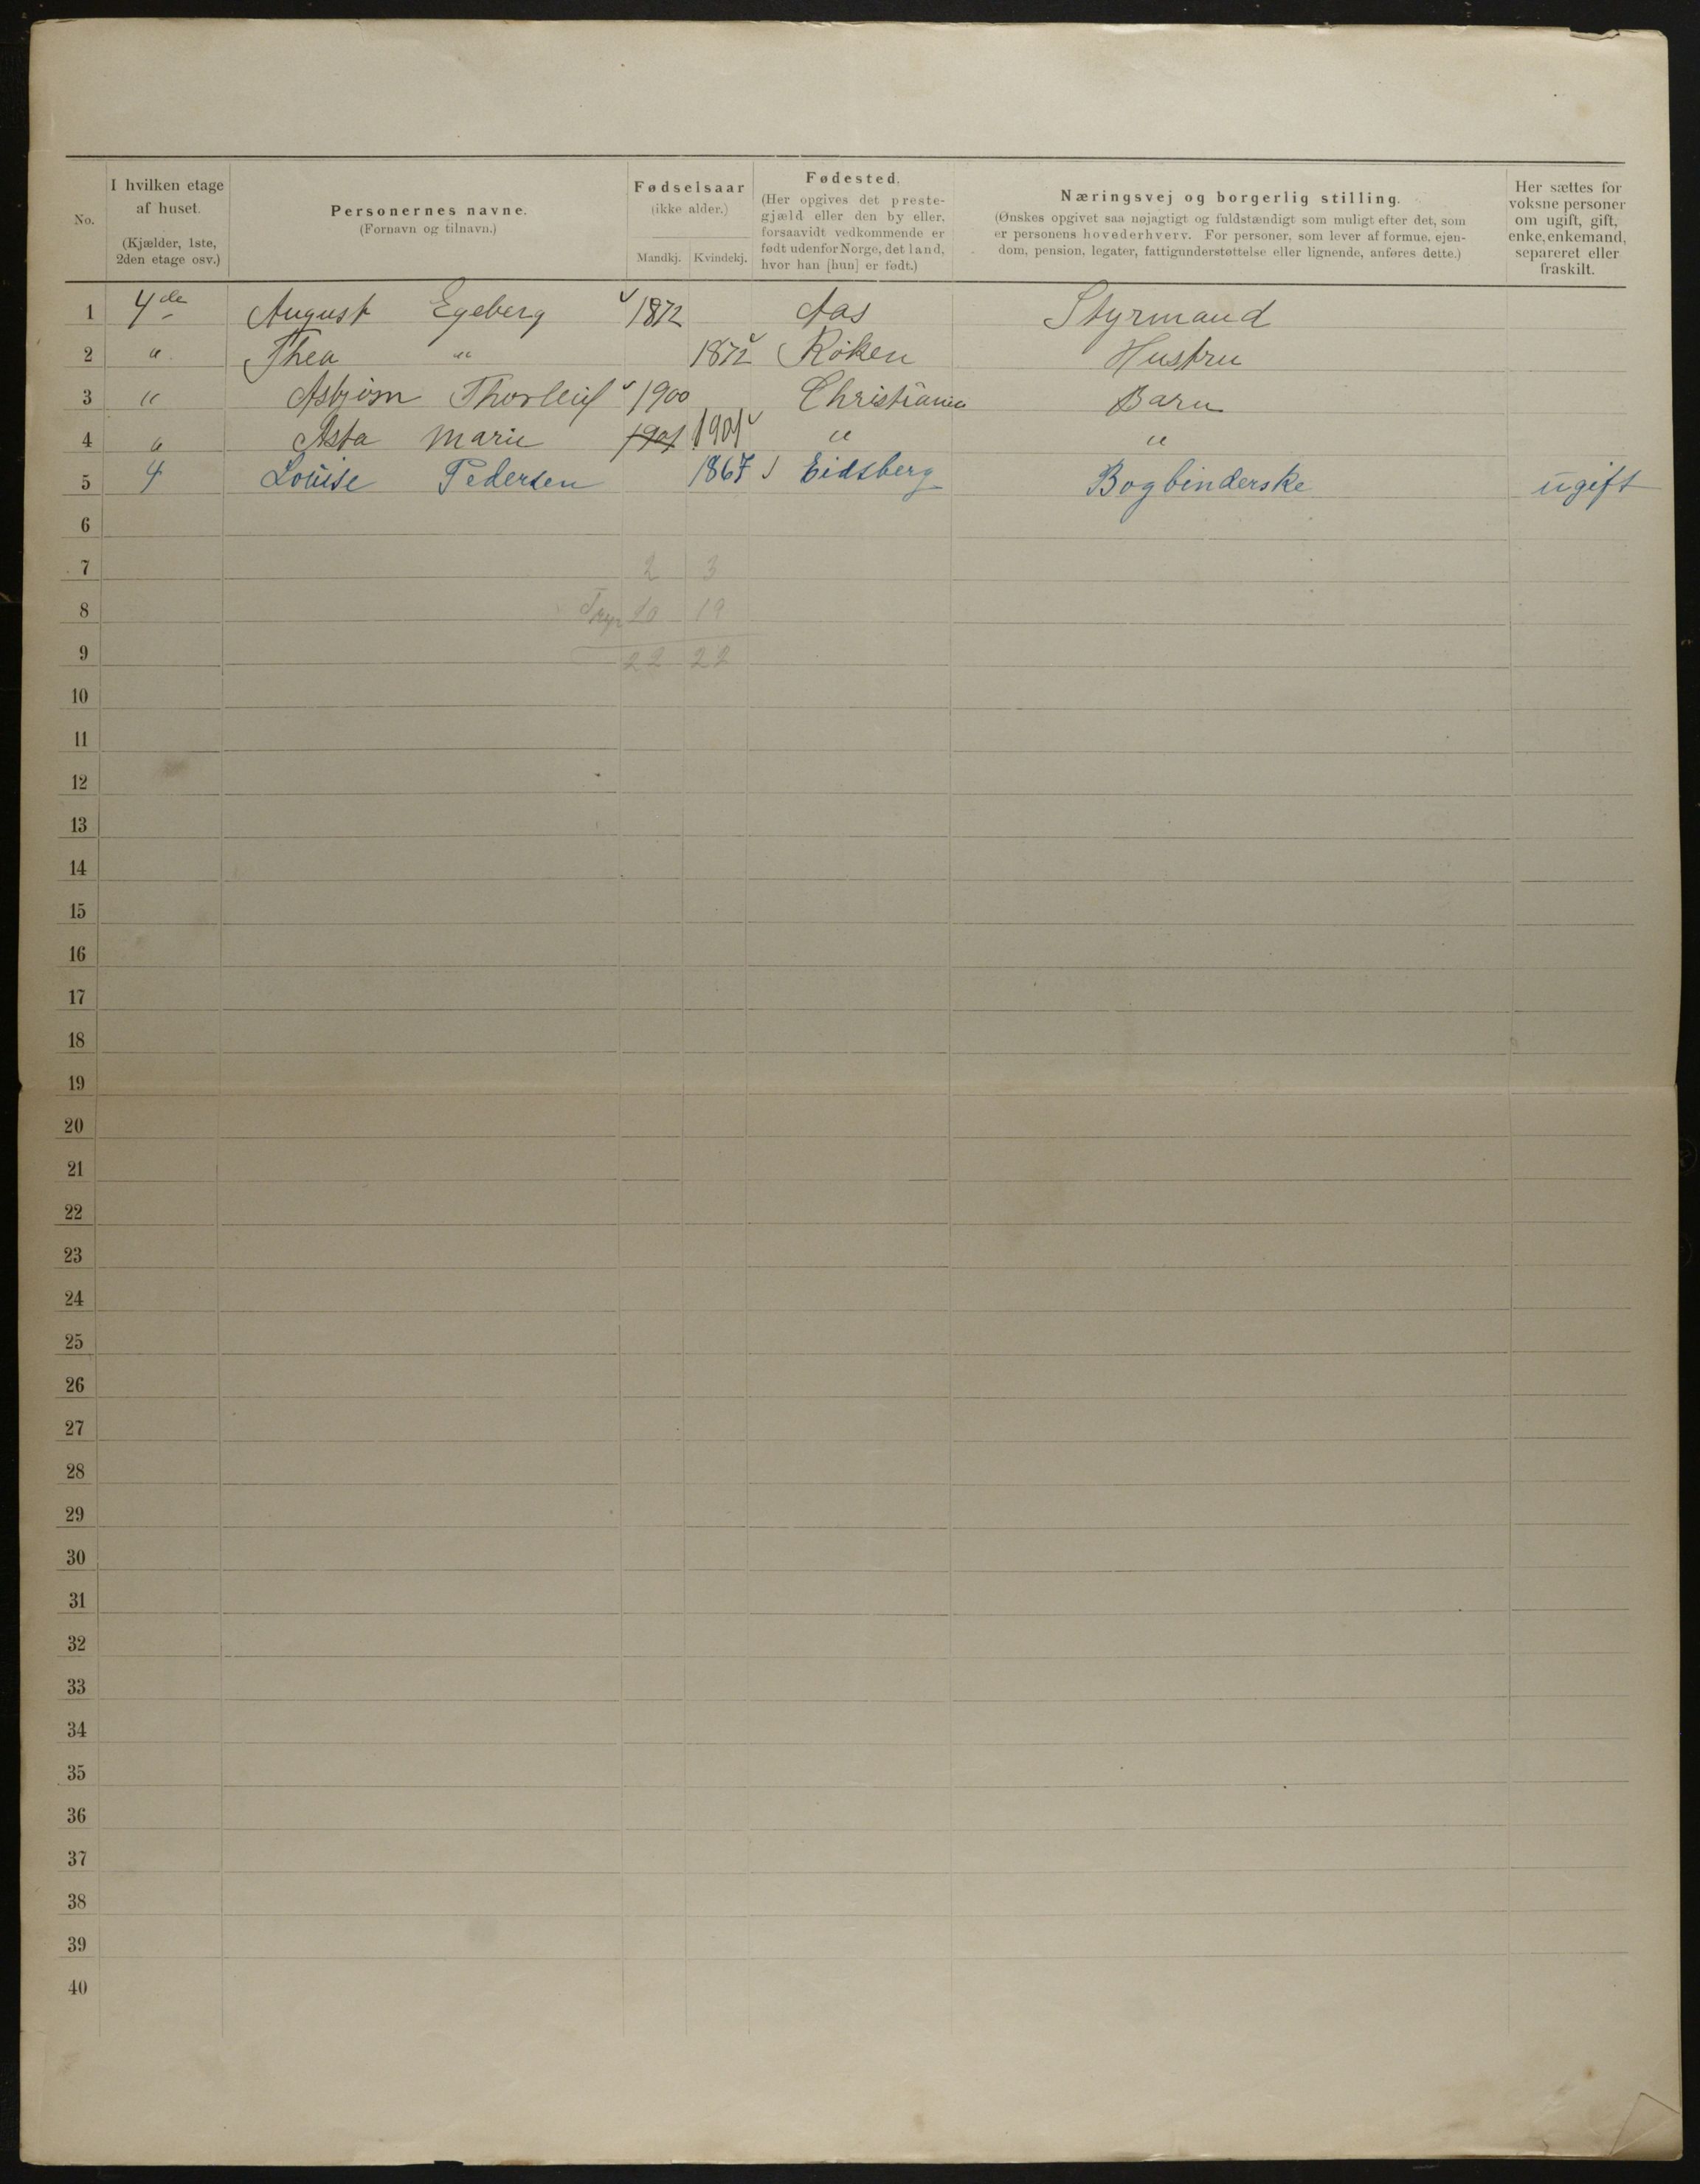 No.
I hvilken etage
af huset.
(Kjælder, 1ste,
2den etage osv.)
Personernes navne.
(Fornavn og tilnavn.)
Fødselsaar
(ikke alder.)
Mandkj. Kvindekj.
Fødested.
(Her opgives det preste-
gjæld eller den by eller,
forsaavidt vedkommende er
født udenfor Norge, det land,
hvor han [hun] er født.)
Næringsvej og borgerlig stilling.
(Ønskes opgivet saa nøjagtigt og fuldstændigt som muligt efter det, som
er personens hovederhverv. For personer, som lever af formue, ejen-
dom, pension, legater, fattigunderstøttelse eller lignende, anføres dette.)
Her sættes for
voksne personer
om ugift, gift,
enke, enkemand,
separeret eller
fraskilt.
1 4de August Egeberg 1872 Aas Styrmand
2 " Thea " 1872 Røken Hustru
3 " Asbjørn Thorleif 1900 Christiania Barn
4 " Asta Marie 1901 1901 " "
5 4 Louise Pedersen 1867 Eidsberg Bogbinderske ugift
6
7 2 3
8 19
9 22 22
10
11
12
13
14
15
16
17
18
19
20
21
22
23
24
25
26
27
28
29
30
31
32
33
34
35
36
37
38
39
40